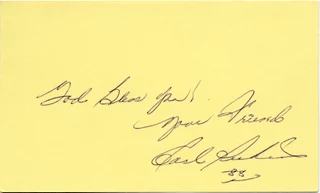 God Bless you!
Your Friend
Carl
88